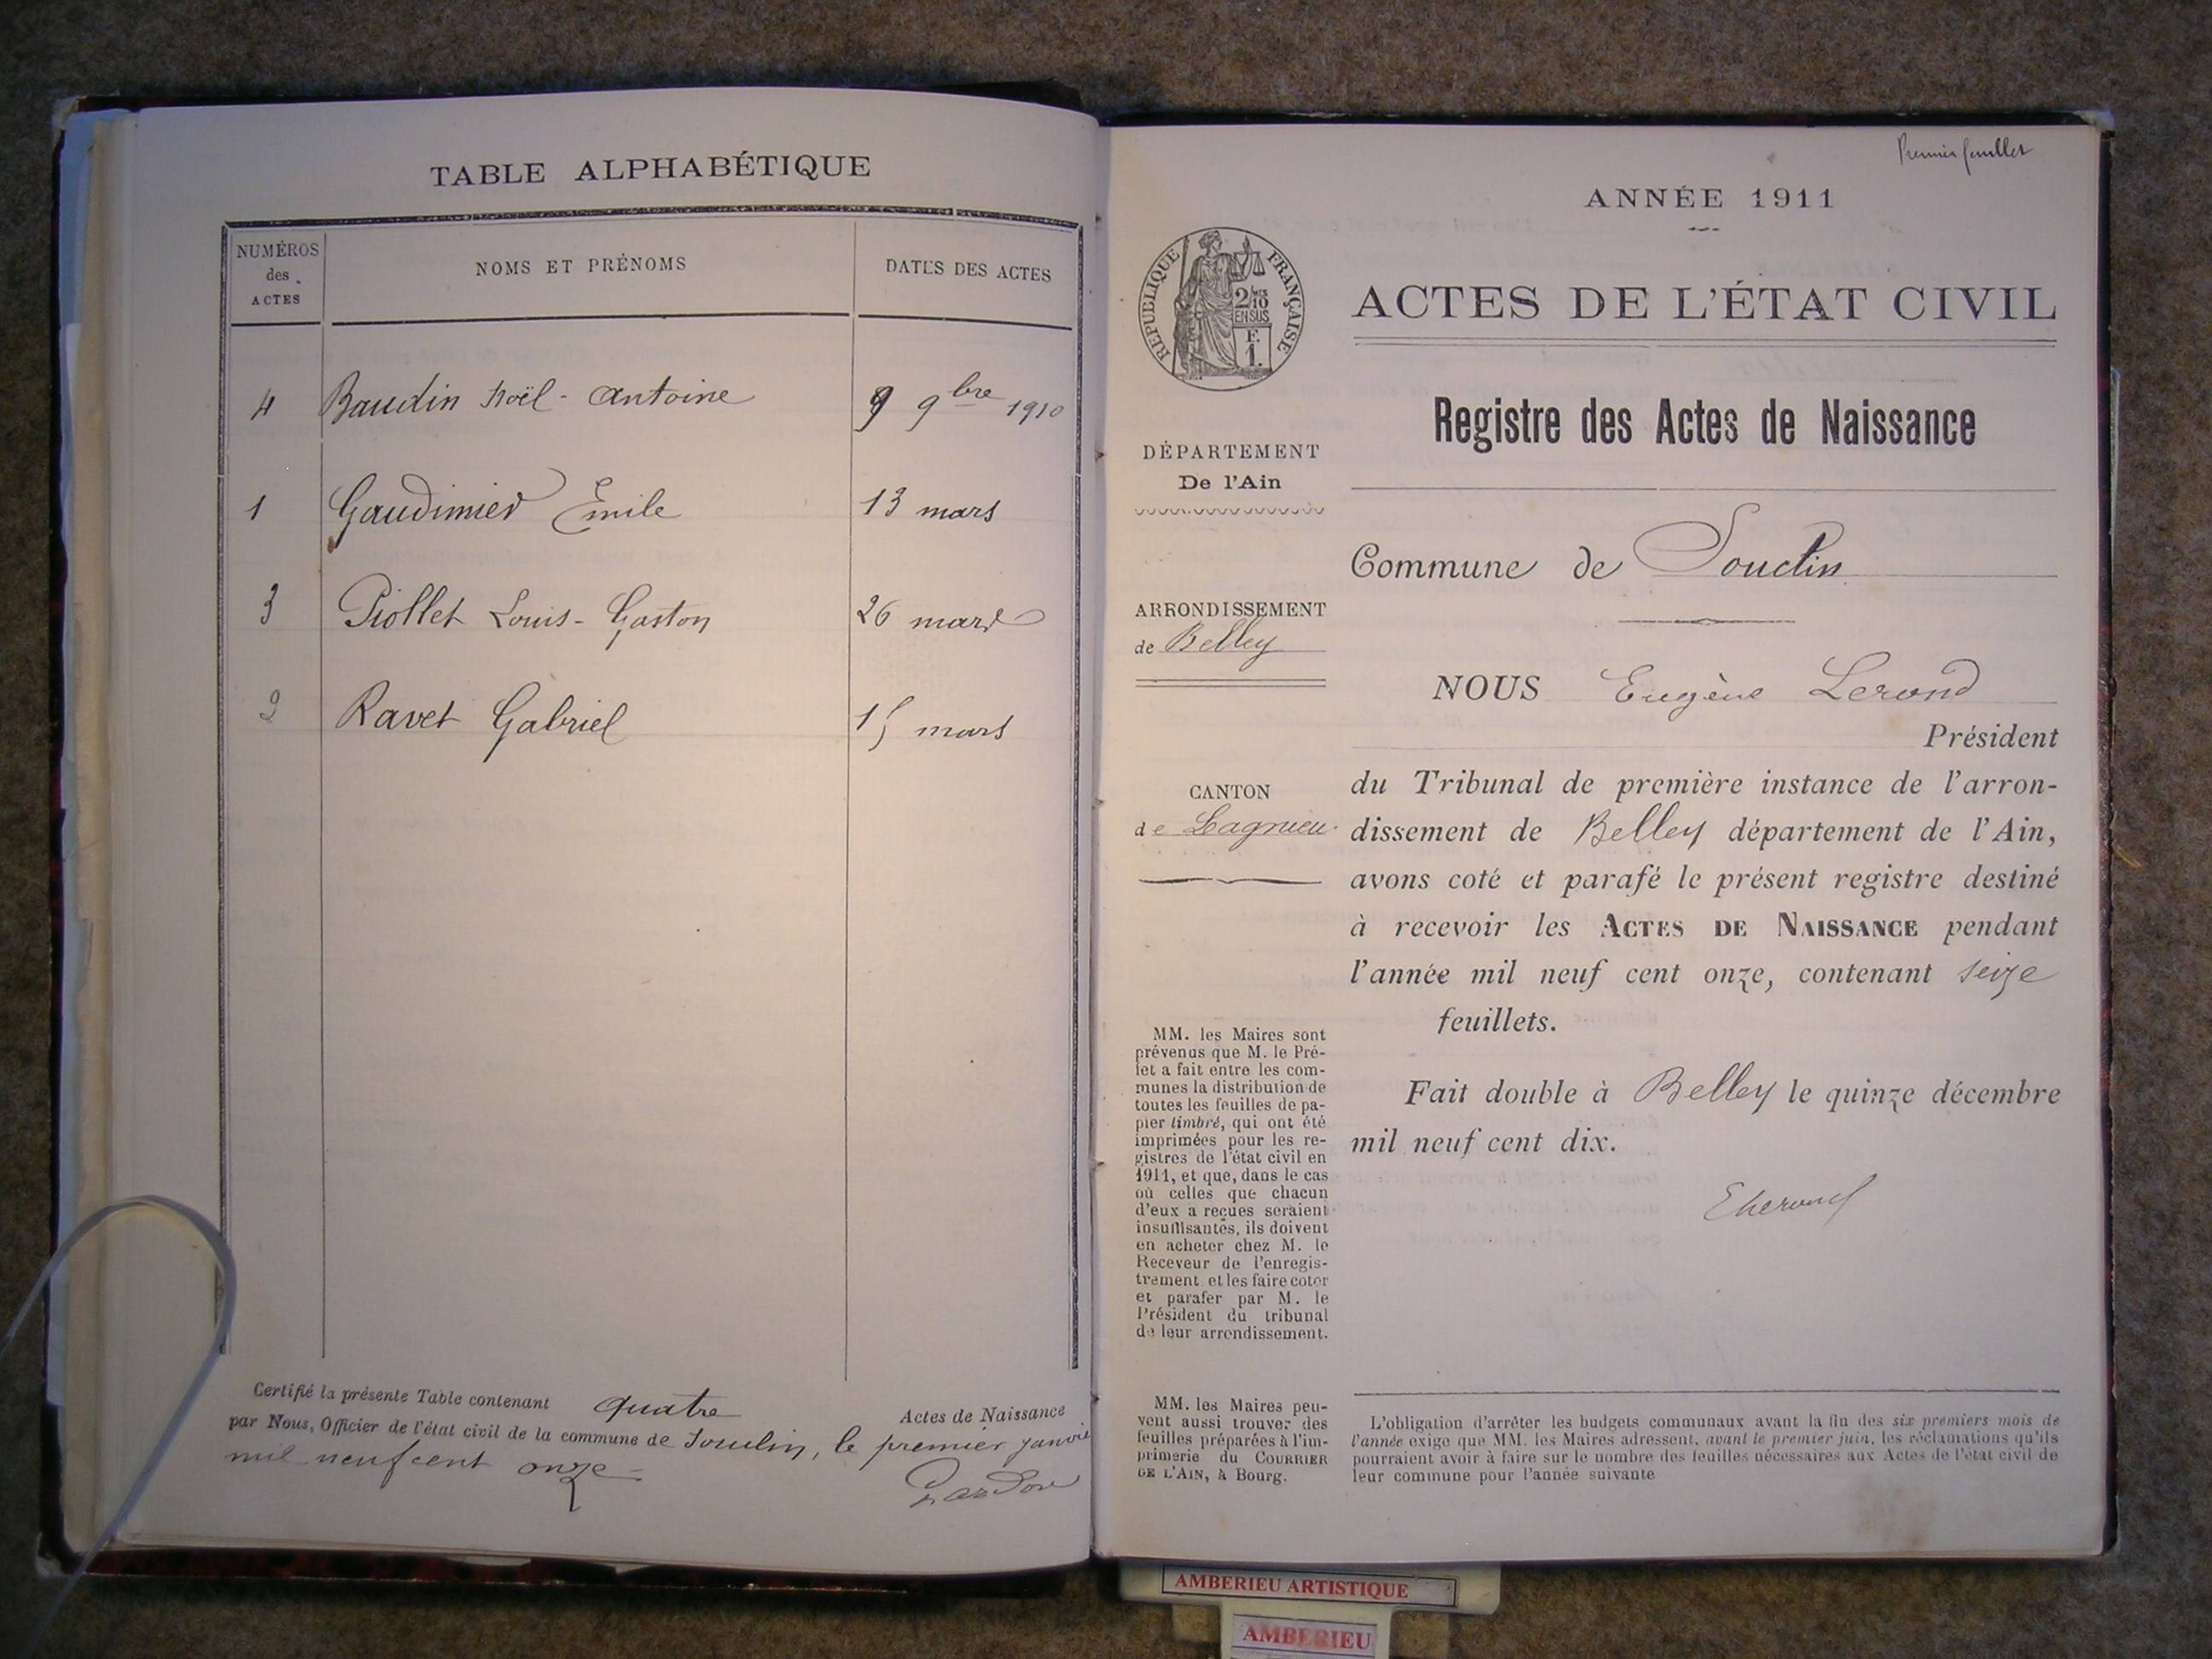 TABLE ALPHABÉTIQUE
NUMÉROS des ACTES
NOMS ET PRÉNOMS
DATES DES ACTES
4 Baudin Noël-Antoine 9 9bre 1910
1 Gaudimier Emile 13 mars
3 Piollet Louis-Gaston 26 mars
2 Ravet Gabriel 15 mars
Certifié la présente Table contenant quatre Actes de Naissance
par Nous, Officier de l'état civil de la commune de Souclin, le premier janvier
mil neuf cent onze
Premier feuillet
ANNÉE 1911
RÉPUBLIQUE FRANÇAISE
2/10
EN SUS
F.
1.
ACTES DE L'ÉTAT CIVIL
Registre des Actes de Naissance
DÉPARTEMENT
De l'Ain
Commune de Souclin
ARRONDISSEMENT
de Belley
CANTON
de Lagnieu
NOUS Eugène Lerond
Président
du Tribunal de première instance de l'arron-
dissement de Belley département de l'Ain,
avons coté et parafé le présent registre destiné
à recevoir les ACTES DE NAISSANCE pendant
l'année mil neuf cent onze, contenant seize
feuillets.
Fait double à Belley le quinze décembre
mil neuf cent dix.
MM. les Maires sont
prévenus que M. le Pré-
fet a fait entre les com-
munes la distribution de
toutes les feuilles de pa-
pier timbré, qui ont été
imprimées pour les re-
gistres de l'état civil en
1911, et que, dans le cas
où celles que chacun
d'eux a reçues seraient
insuffisantes, ils doivent
en acheter chez M. le
Receveur de l'enregis-
trement et les faire coter
et parafer par M. le
Président du tribunal
de leur arrondissement.
MM. les Maires peu-
vent aussi trouver des
feuilles préparées à l'im-
primerie du COURRIER
DE L'AIN, à Bourg.
L'obligation d'arrêter les budgets communaux avant la fin des six premiers mois de
l'année exige que MM. les Maires adressent, avant le premier juin, les réclamations qu'ils
pourraient avoir à faire sur le nombre des feuilles nécessaires aux Actes de l'état civil de
leur commune pour l'année suivante
AMBERIEU ARTISTIQUE
AMBERIEU